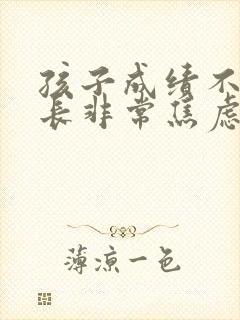 孩子成绩不
长非常焦虑
薄凉一色